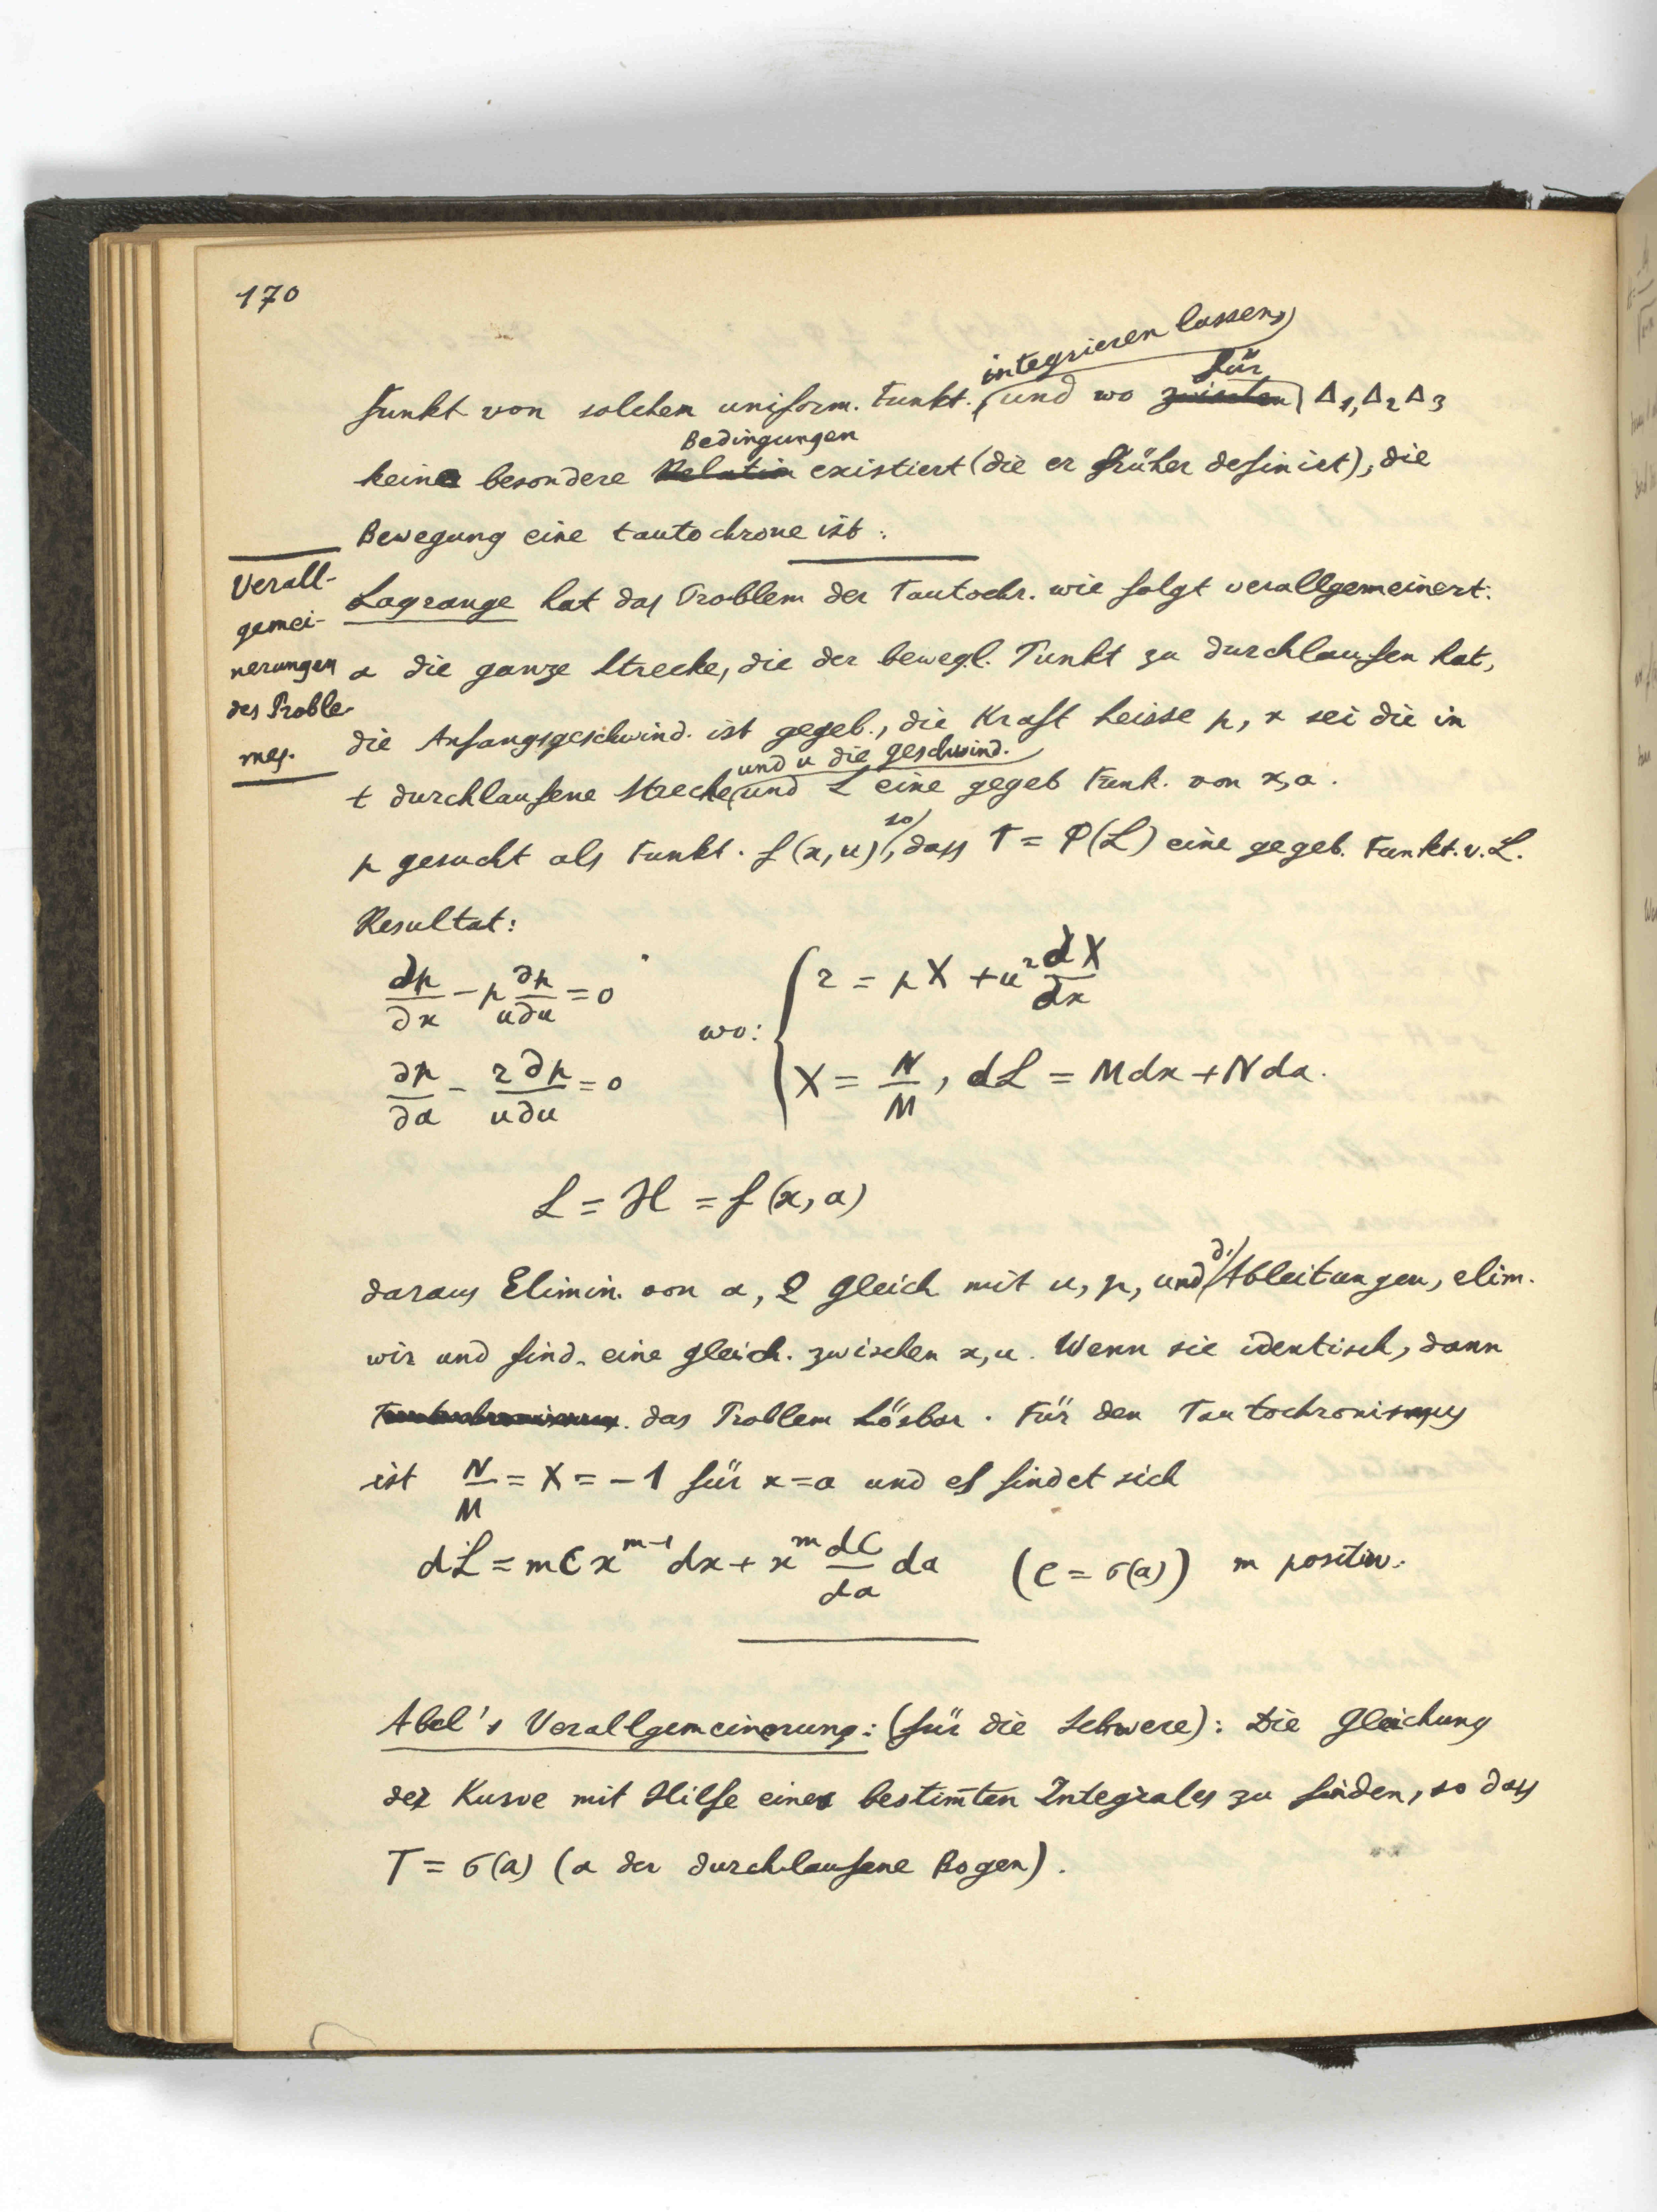 170
integrieren lassen,
für
Funkt von solchen uniform. Funkt. und wo zwischen Δ₁, Δ₂ Δ₃
Bedingungen
keine besondere Relation existiert (die er früher definiert), die
Bewegung eine tautochrone ist.
Verall-
gemei-
nerungen
des Proble-
mes.
Lagrange hat das Problem der Tautochr. wie folgt verallgemeinert:
a die ganze Strecke, die der bewegl. Punkt zu durchlaufen hat,
die Anfangsgeschwind. ist gegeb., die Kraft heisse p, x sei die in
und u die geschwind.
t durchlaufene Strecke und L eine gegeb Funk. von x, a.
p gesucht als Funkt. f(x, u), so dass T = φ(L) eine gegeb. Funkt. v. L.
Resultat:
∂p/∂x - p ∂p/u∂u = 0
∂p/∂a - r∂p/u∂u = 0
wo:
r = pX + u² dX/dx
X = N/M, dL = Mdx + Nda.
L = H = f(x, a)
daraus Elimin. von a, 2 gleich mit u, p, und d. Ableitungen, elim.
wir und find. eine gleich. zwischen x, u. Wenn sie identisch, dann
Tautochronismus. das Problem Lösbar. Für den Tautochronismus
ist N/M = X = -1 für x = a und es findet sich
dL = mCx^(m-1) dx + x^m dC/da da (C = σ(a)) m positiv.
Abel's Verallgemeinerung: (für die Schwere): Die Gleichung
der Kurve mit Hilfe eines bestim̄ten Integrales zu finden, so dass
T = σ(a) (a der durchlaufene Bogen).